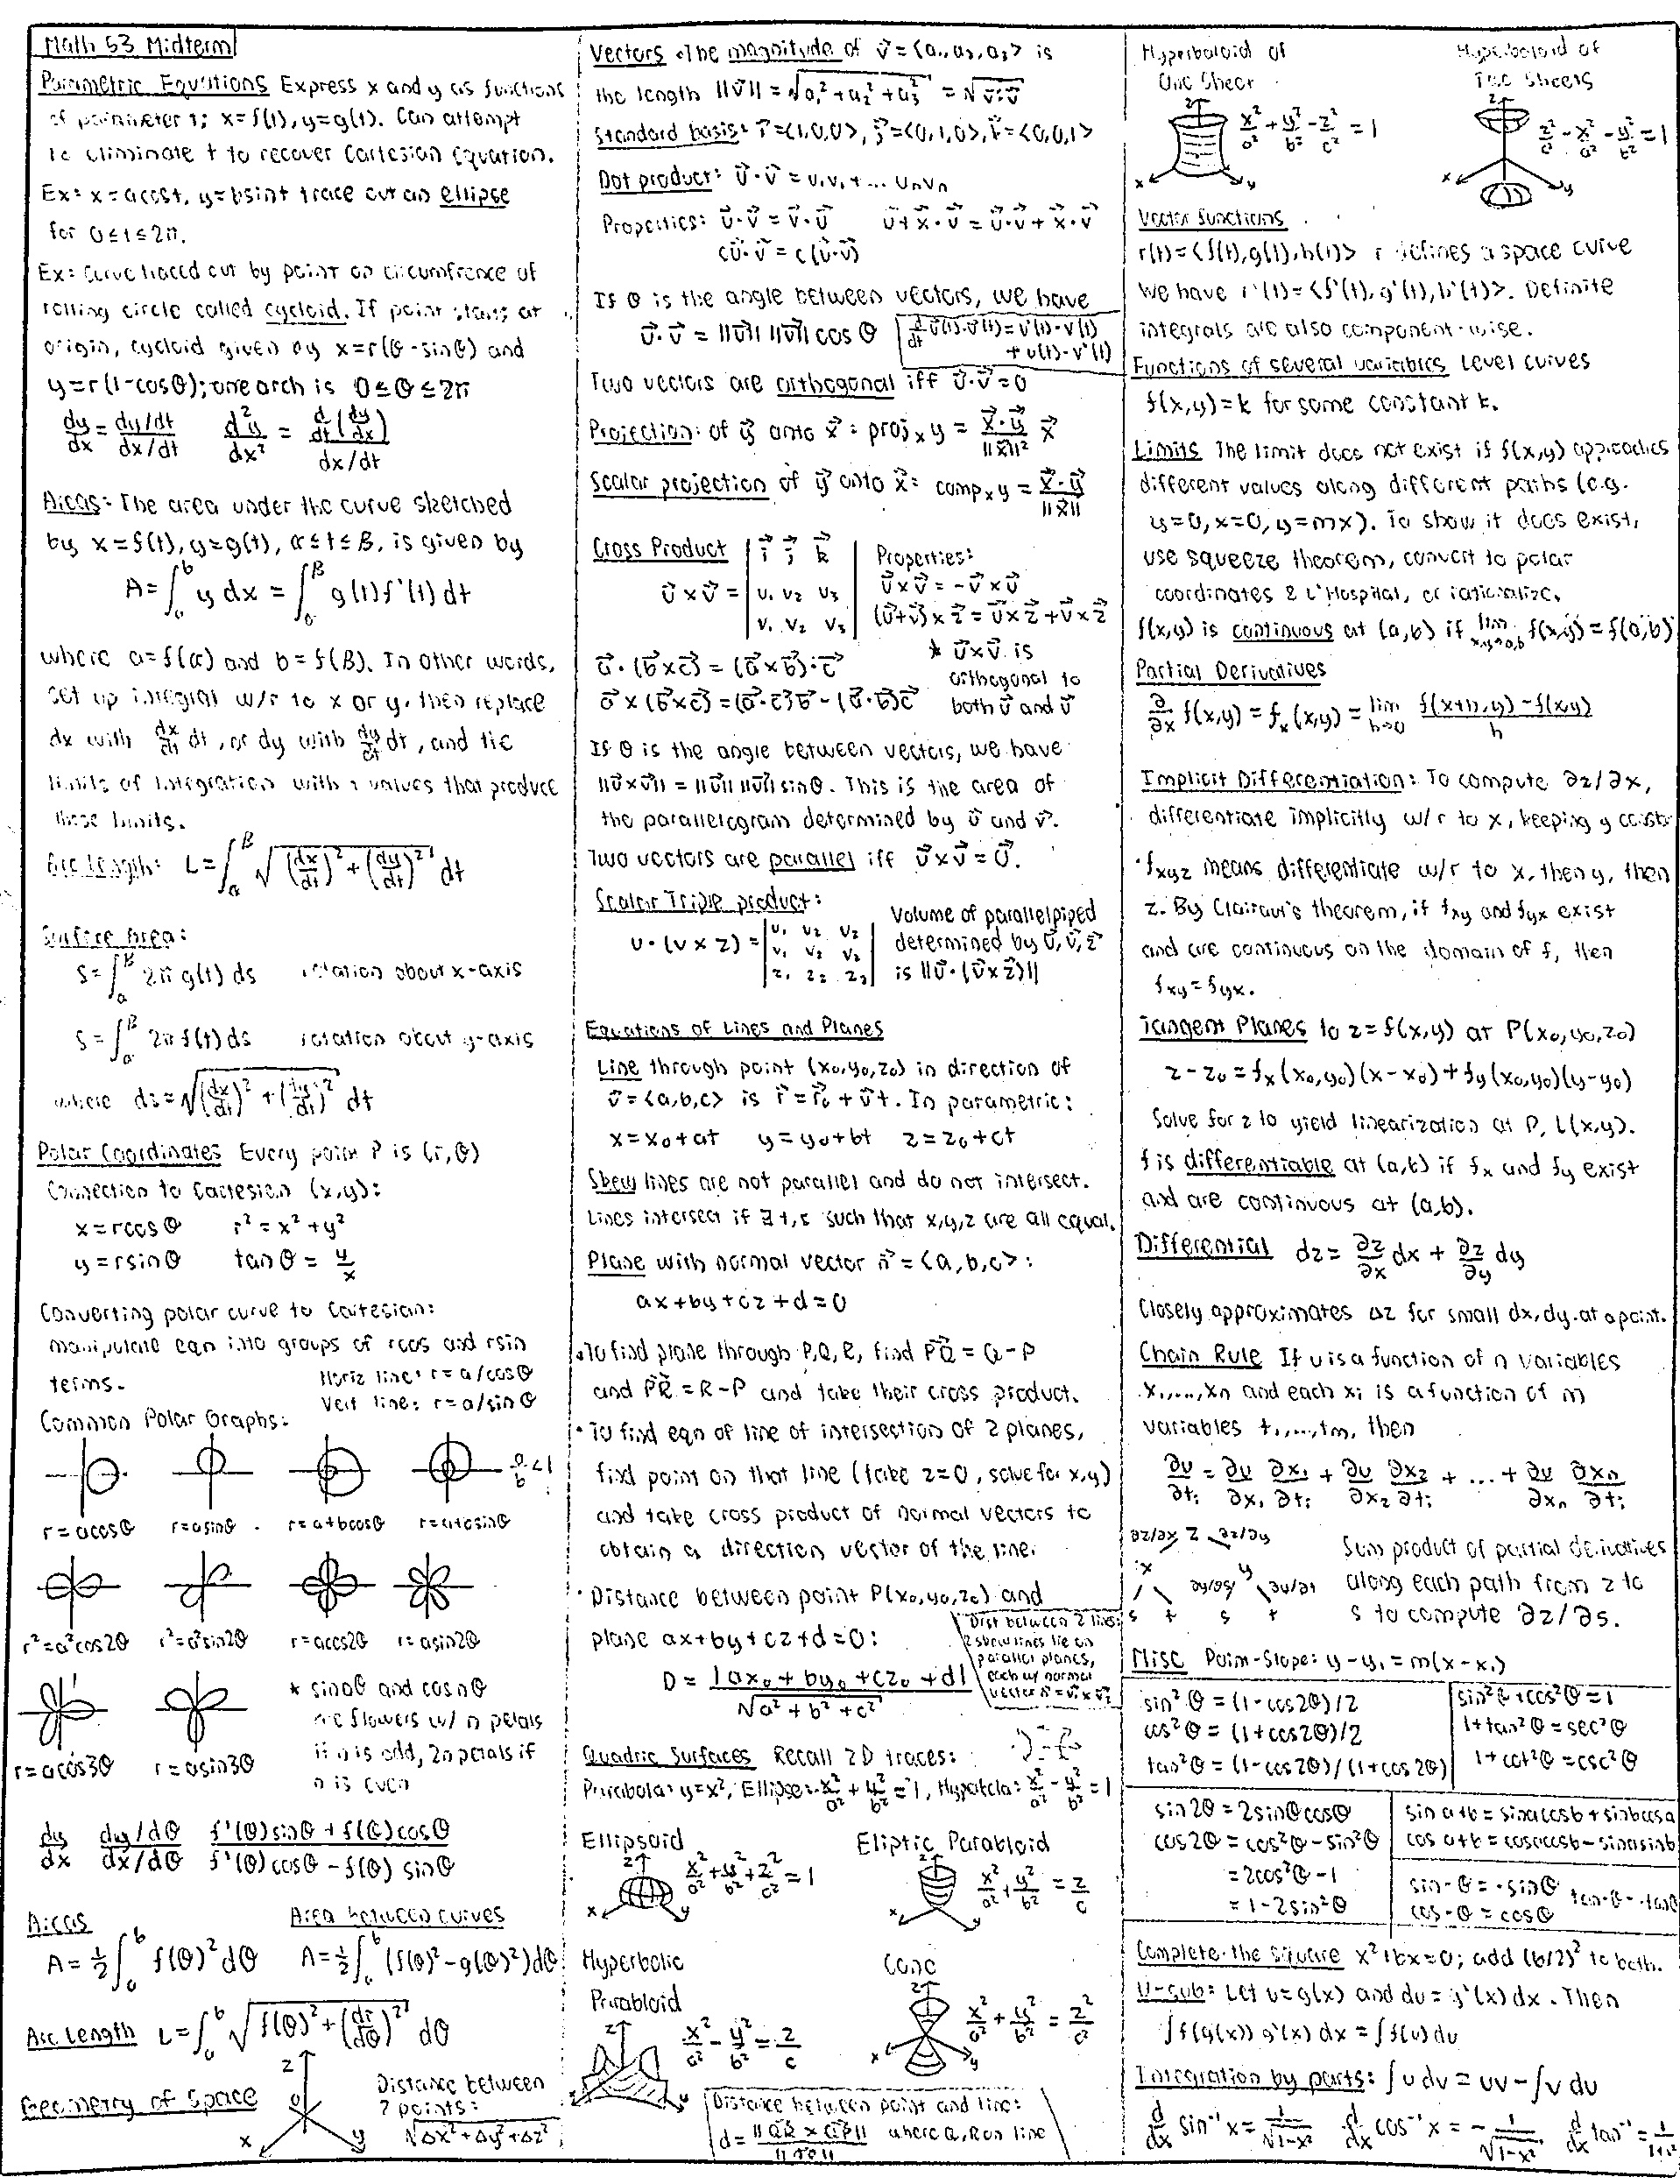 Math 53 Midterm
Parametric Equations Express x and y as functions
of parameter t; x=f(t), y=g(t). Can attempt
to eliminate t to recover Cartesian Equation.
Ex: x=acost, y=bsint trace out an ellipse
for 0≤t≤2π.
Ex: Curve traced out by point on circumfrence of
rolling circle called cycloid. If point starts at
origin, cycloid given by x=r(θ-sinθ) and
y=r(1-cosθ); one arch is 0≤θ≤2π
dy/dx = (dy/dt)/(dx/dt)   d²y/dx² = (d/dt(dy/dx))/(dx/dt)
Areas: The area under the curve sketched
by x=f(t), y=g(t), α≤t≤β, is given by
A=∫ₐᵇ y dx = ∫ g(t)f'(t)dt
where a=f(α) and b=f(β). In other words,
set up integral w/r to x or y, then replace
dx with dx/dt dt, or dy with dy/dt dt, and the
limits of integration with t values that produce
those limits.
Arc Length: L=∫ √((dx/dt)²+(dy/dt)²) dt
Surface Area:
S=∫ 2π g(t) ds   rotation about x-axis
S=∫ 2π f(t) ds   rotation about y-axis
where ds=√((dx/dt)²+(dy/dt)²) dt
Polar Coordinates Every point P is (r,θ)
Connection to Cartesian (x,y):
x=rcosθ   r²=x²+y²
y=rsinθ   tanθ = y/x
Converting polar curve to Cartesian:
manipulate eqn into groups of rcos and rsin
terms.
Horiz line: r=a/cosθ
Vert line: r=a/sinθ
Common Polar Graphs:
a/b<1
r=acosθ   r=asinθ   r=a+bcosθ   r=a+bsinθ
r²=a²cos2θ   r²=a²sin2θ   r=acos2θ   r=asin2θ
* sinnθ and cosnθ
are flowers w/ n petals
if n is odd, 2n petals if
n is even
r=acos3θ   r=asin3θ
dy/dx   (dy/dθ)/(dx/dθ)   (f'(θ)sinθ+f(θ)cosθ)/(f'(θ)cosθ-f(θ)sinθ)
Areas   Area between curves
A=½∫ₐᵇ f(θ)²dθ   A=½∫ₐᵇ (f(θ)²-g(θ)²)dθ
Arc Length L=∫ₐᵇ √(f(θ)²+(dr/dθ)²) dθ
Geometry of Space
z
x y
Distance between
2 points:
√Δx²+Δy²+Δz²
Vectors •The magnitude of v⃗=<a₁,a₂,a₃> is
the length ||v⃗||=√a₁²+a₂²+a₃² = √v⃗·v⃗
Standard basis: i⃗=<1,0,0>, j⃗=<0,1,0>, k⃗=<0,0,1>
Dot product: u⃗·v⃗ = u₁v₁+... uₙvₙ
Properties: u⃗·v⃗ = v⃗·u⃗   u⃗+x⃗·v⃗ = u⃗·v⃗ + x⃗·v⃗
cu⃗·v⃗ = c(u⃗·v⃗)
If θ is the angle between vectors, we have
u⃗·v⃗ = ||u⃗|| ||v⃗|| cos θ
d/dt u⃗(t)·v⃗(t)=u'(t)·v(t)
+u(t)·v'(t)
Two vectors are orthogonal iff u⃗·v⃗=0
Projection: of y⃗ onto x⃗: projₓy = (x⃗·y⃗)/||x⃗||² x⃗
Scalar projection of y⃗ onto x⃗: compₓy = (x⃗·y⃗)/||x⃗||
Cross Product   Properties:
u⃗×v⃗ = | i⃗ j⃗ k⃗ | u₁ u₂ u₃ | v₁ v₂ v₃ |
u⃗×v⃗=-v⃗×u⃗
(u⃗+v⃗)×z⃗=u⃗×z⃗+v⃗×z⃗
* u⃗×v⃗ is
orthogonal to
both u⃗ and v⃗
a⃗·(b⃗×c⃗)=(a⃗×b⃗)·c⃗
a⃗×(b⃗×c⃗)=(a⃗·c⃗)b⃗-(a⃗·b⃗)c⃗
If θ is the angle between vectors, we have
||u⃗×v⃗|| = ||u⃗|| ||v⃗|| sinθ. This is the area of
the parallelogram determined by u⃗ and v⃗.
Two vectors are parallel iff u⃗×v⃗=0⃗.
Scalar Triple product:
u·(v×z)=| u₁ u₂ u₃ | v₁ v₂ v₃ | z₁ z₂ z₃ |
Volume of parallelpiped
determined by u⃗,v⃗,z⃗
is ||u⃗·(v⃗×z⃗)||
Equations of Lines and Planes
Line through point (x₀,y₀,z₀) in direction of
v⃗=<a,b,c> is r⃗=r⃗₀+v⃗t. In parametric:
x=x₀+at   y=y₀+bt   z=z₀+ct
Skew lines are not parallel and do not intersect.
Lines intersect if ∃ t,s such that x,y,z are all equal.
Plane with normal vector n⃗=<a,b,c>:
ax+by+cz+d=0
•To find plane through P,Q,R, find PQ⃗=Q-P
and PR⃗=R-P and take their cross product.
•To find eqn of line of intersection of 2 planes,
find point on that line (take z=0, solve for x,y)
and take cross product of normal vectors to
obtain a direction vector of the line.
•Distance between point P(x₀,y₀,z₀) and
plane ax+by+cz+d=0:
D = |ax₀+by₀+cz₀+d|/√a²+b²+c²
Dist between 2 lines:
2 skew lines lie on
parallel planes,
each w/ normal
vector n⃗=v⃗₁×v⃗₂
Quadric Surfaces Recall 2D traces:
Parabola: y=x², Ellipse: x²/a²+y²/b²=1, Hyperbola: x²/a²-y²/b²=1
Ellipsoid   Eliptic Parabloid
z x y   x²/a²+y²/b²+z²/c²=1
z x y   x²/a²+y²/b²=z/c
Hyperbolic
Parabloid
z y   x²/a²-y²/b²=z/c
Cone
z x y   x²/a²+y²/b²=z²/c²
Distance between point and line:
d=||QR⃗×QP⃗||/||QR⃗|| where Q,R on line
Hyperboloid of
One Sheet
z x y   x²/a²+y²/b²-z²/c²=1
Hyperboloid of
Two Sheets
z x y   z²/c²-x²/a²-y²/b²=1
Vector functions
r(t)=<f(t),g(t),h(t)> r defines a space curve
We have r'(t)=<f'(t),g'(t),h'(t)>. Definite
integrals are also component-wise.
Functions of several variables Level curves
f(x,y)=k for some constant k.
Limits The limit does not exist if f(x,y) approaches
different values along different paths (e.g.
y=0, x=0, y=mx). To show it does exist,
use squeeze theorem, convert to polar
coordinates & L'Hospital, or rationalize.
f(x,y) is continuous at (a,b) if lim x,y→a,b f(x,y)=f(a,b)
Partial Derivatives
∂/∂x f(x,y)=fₓ(x,y)=lim h→0 (f(x+h,y)-f(x,y))/h
Implicit Differentiation: To compute ∂z/∂x,
differentiate implicitly w/r to x, keeping y const.
•f_xyz means differentiate w/r to x, then y, then
z. By Clairaut's theorem, if f_xy and f_yx exist
and are continuous on the domain of f, then
f_xy=f_yx.
Tangent Planes to z=f(x,y) at P(x₀,y₀,z₀)
z-z₀=fₓ(x₀,y₀)(x-x₀)+f_y(x₀,y₀)(y-y₀)
Solve for z to yield linearization at P, L(x,y).
f is differentiable at (a,b) if fₓ and f_y exist
and are continuous at (a,b).
Differential dz=∂z/∂x dx + ∂z/∂y dy
Closely approximates Δz for small dx,dy. at a point.
Chain Rule If u is a function of n variables
x₁,...,xₙ and each xᵢ is a function of m
variables t₁,...,tₘ, then
∂u/∂tᵢ = ∂u/∂x₁ ∂x₁/∂tᵢ + ∂u/∂x₂ ∂x₂/∂tᵢ + ... + ∂u/∂xₙ ∂xₙ/∂tᵢ
∂z/∂x z ∂z/∂y
x y
∂y/∂s ∂y/∂t
s t s t
Sum product of partial derivatives
along each path from z to
s to compute ∂z/∂s.
Misc Point-Slope: y-y₁=m(x-x₁)
sin²θ=(1-cos2θ)/2
cos²θ=(1+cos2θ)/2
tan²θ=(1-cos2θ)/(1+cos2θ)
sin²θ+cos²θ=1
1+tan²θ=sec²θ
1+cot²θ=csc²θ
sin2θ=2sinθcosθ
cos2θ=cos²θ-sin²θ
=2cos²θ-1
=1-2sin²θ
sin a+b=sinacosb+sinbcosa
cos a+b=cosacosb-sinasinb
sin-θ=-sinθ   tan-θ=-tanθ
cos-θ=cosθ
Complete the square x²+bx=0; add (b/2)² to both.
U-sub: Let u=g(x) and du=g'(x)dx. Then
∫f(g(x))g'(x)dx=∫f(u)du
Integration by parts: ∫u dv=uv-∫v du
d/dx sin⁻¹x=1/√1-x²   d/dx cos⁻¹x=-1/√1-x²   d/dx tan⁻¹=1/1+x²